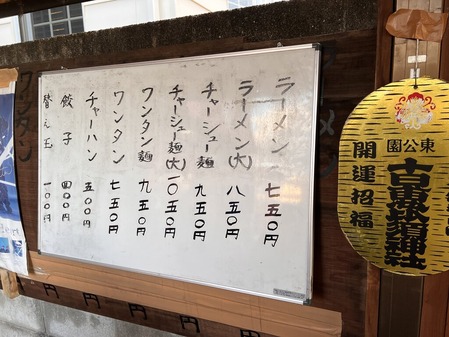 ラーメン 七五〇円
ラーメン(大) 八五〇円
チャーシュー麺 九五〇円
チャーシュー麺(大) 一〇五〇円
ワンタン麺 九五〇円
ワンタン 七五〇円
チャーハン 五〇〇円
餃子 四〇〇円
替え玉 一〇〇円
東公園
開運招福
ワンタン
円
円
円
円
円